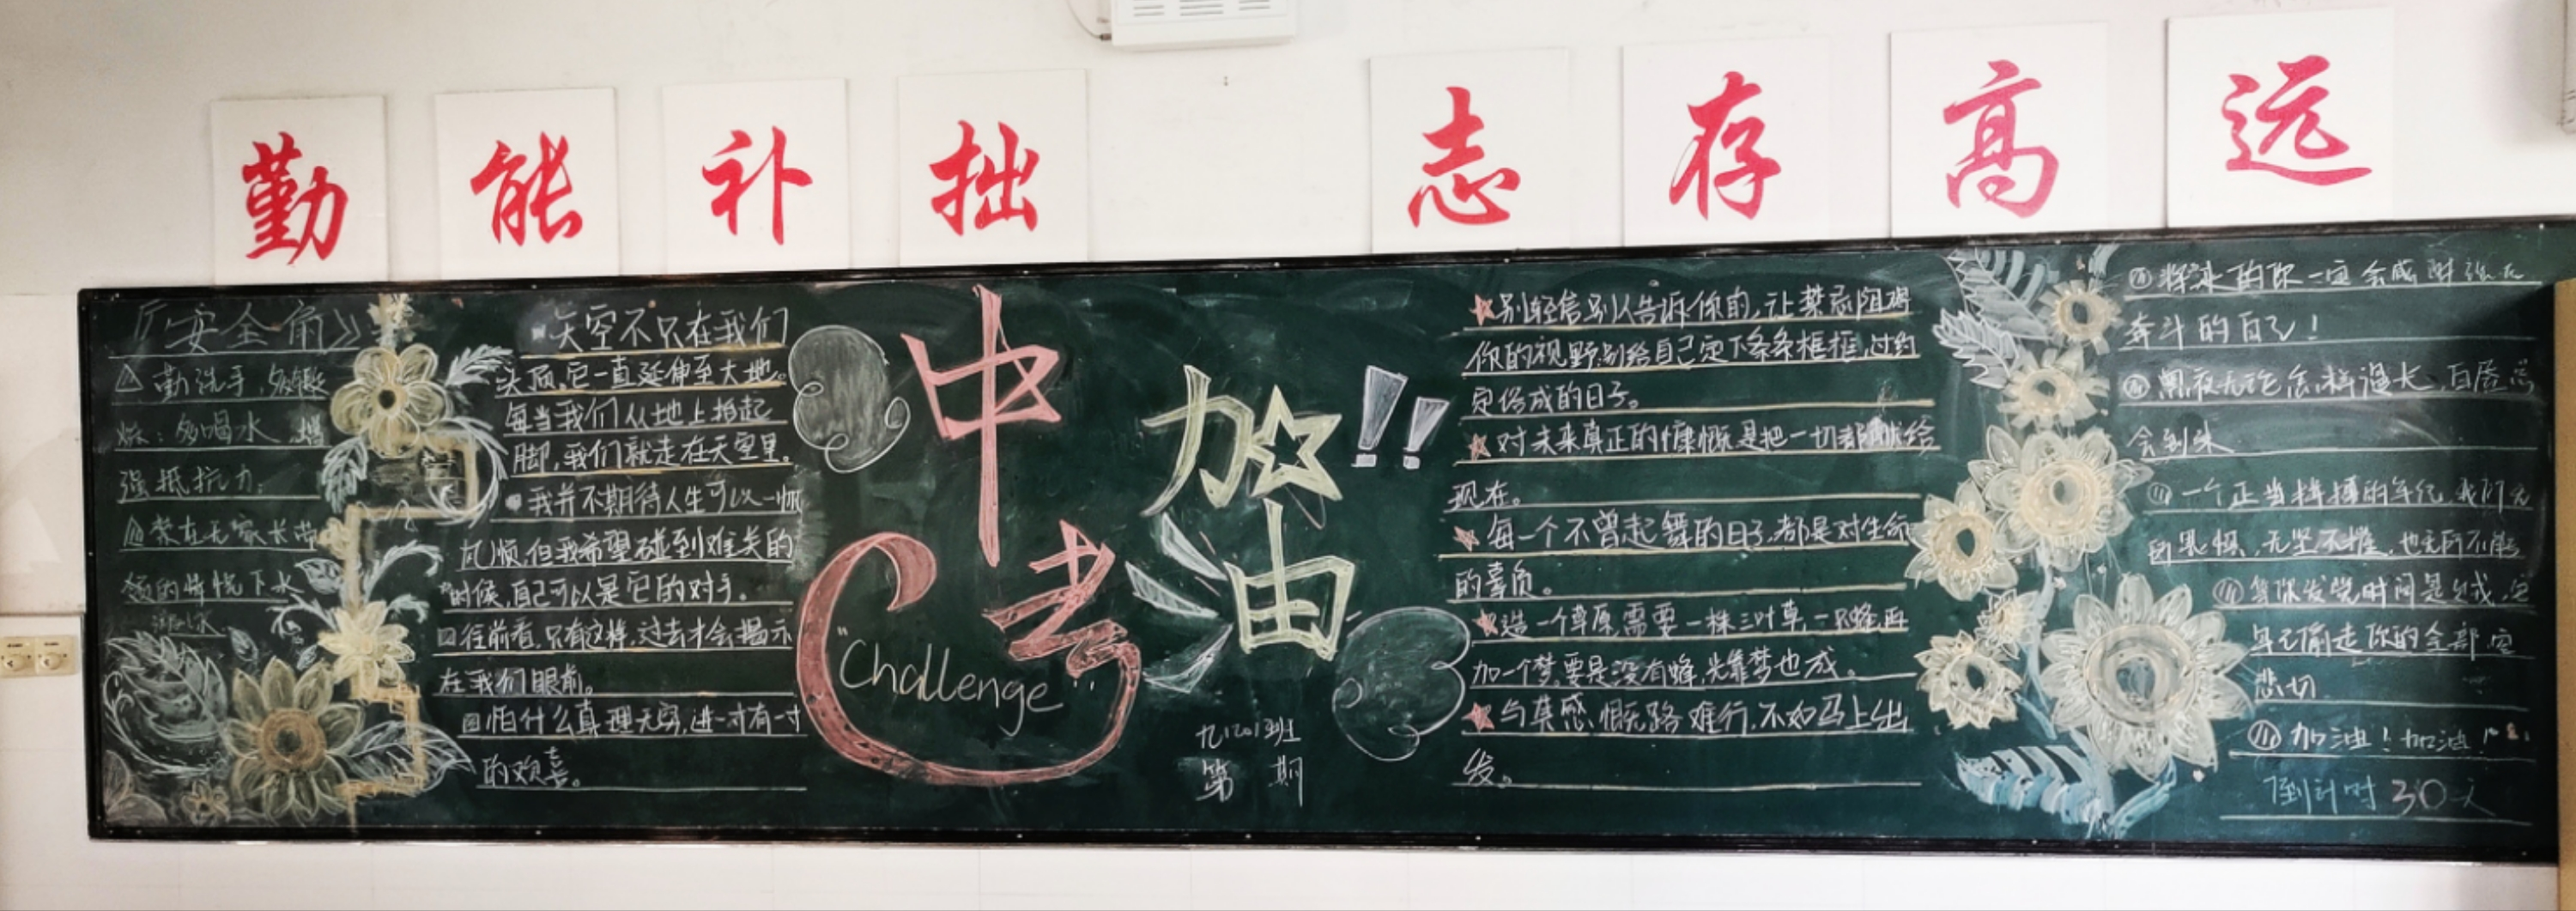 勤能补拙 志存高远
《安全角》
勤洗手,多锻
炼:多喝水 增
强抵抗力;
禁在无家长带
领的情况下水
游泳
天空不只在我们
头顶,它一直延伸至大地。
每当我们从地上抬起
脚,我们就走在天空里。
我并不期待人生可以一帆
风顺,但我希望碰到难关的
时候,自己可以是它的对手。
往前看,只有这样,过去才会揭示
在我们眼前。
怕什么真理无穷,进一寸有一寸
的欢喜。
中考
加油!!
"Challenge"
九(20)班
第 期
别轻信别人告诉你的,让禁忌阻碍
你的视野,别给自己定下条条框框,过约
定俗成的日子。
对未来真正的慷慨是把一切都献给
现在。
每一个不曾起舞的日子,都是对生命
的辜负。
造一个草原,需要一株三叶草,一只蜂,再
加一个梦,要是没有蜂,光靠梦也成。
与其感慨路难行,不如马上出
发。
将来的你一定会感谢现在
奔斗的自己!
黑夜无论怎样漫长,白昼总
会到来
一个正当拼搏的年纪,我们无
所畏惧,无坚不摧,也无所不能
等你发觉时间是贼,它
早已偷走你的全部
悲切
加油!加油!
倒计时 30天